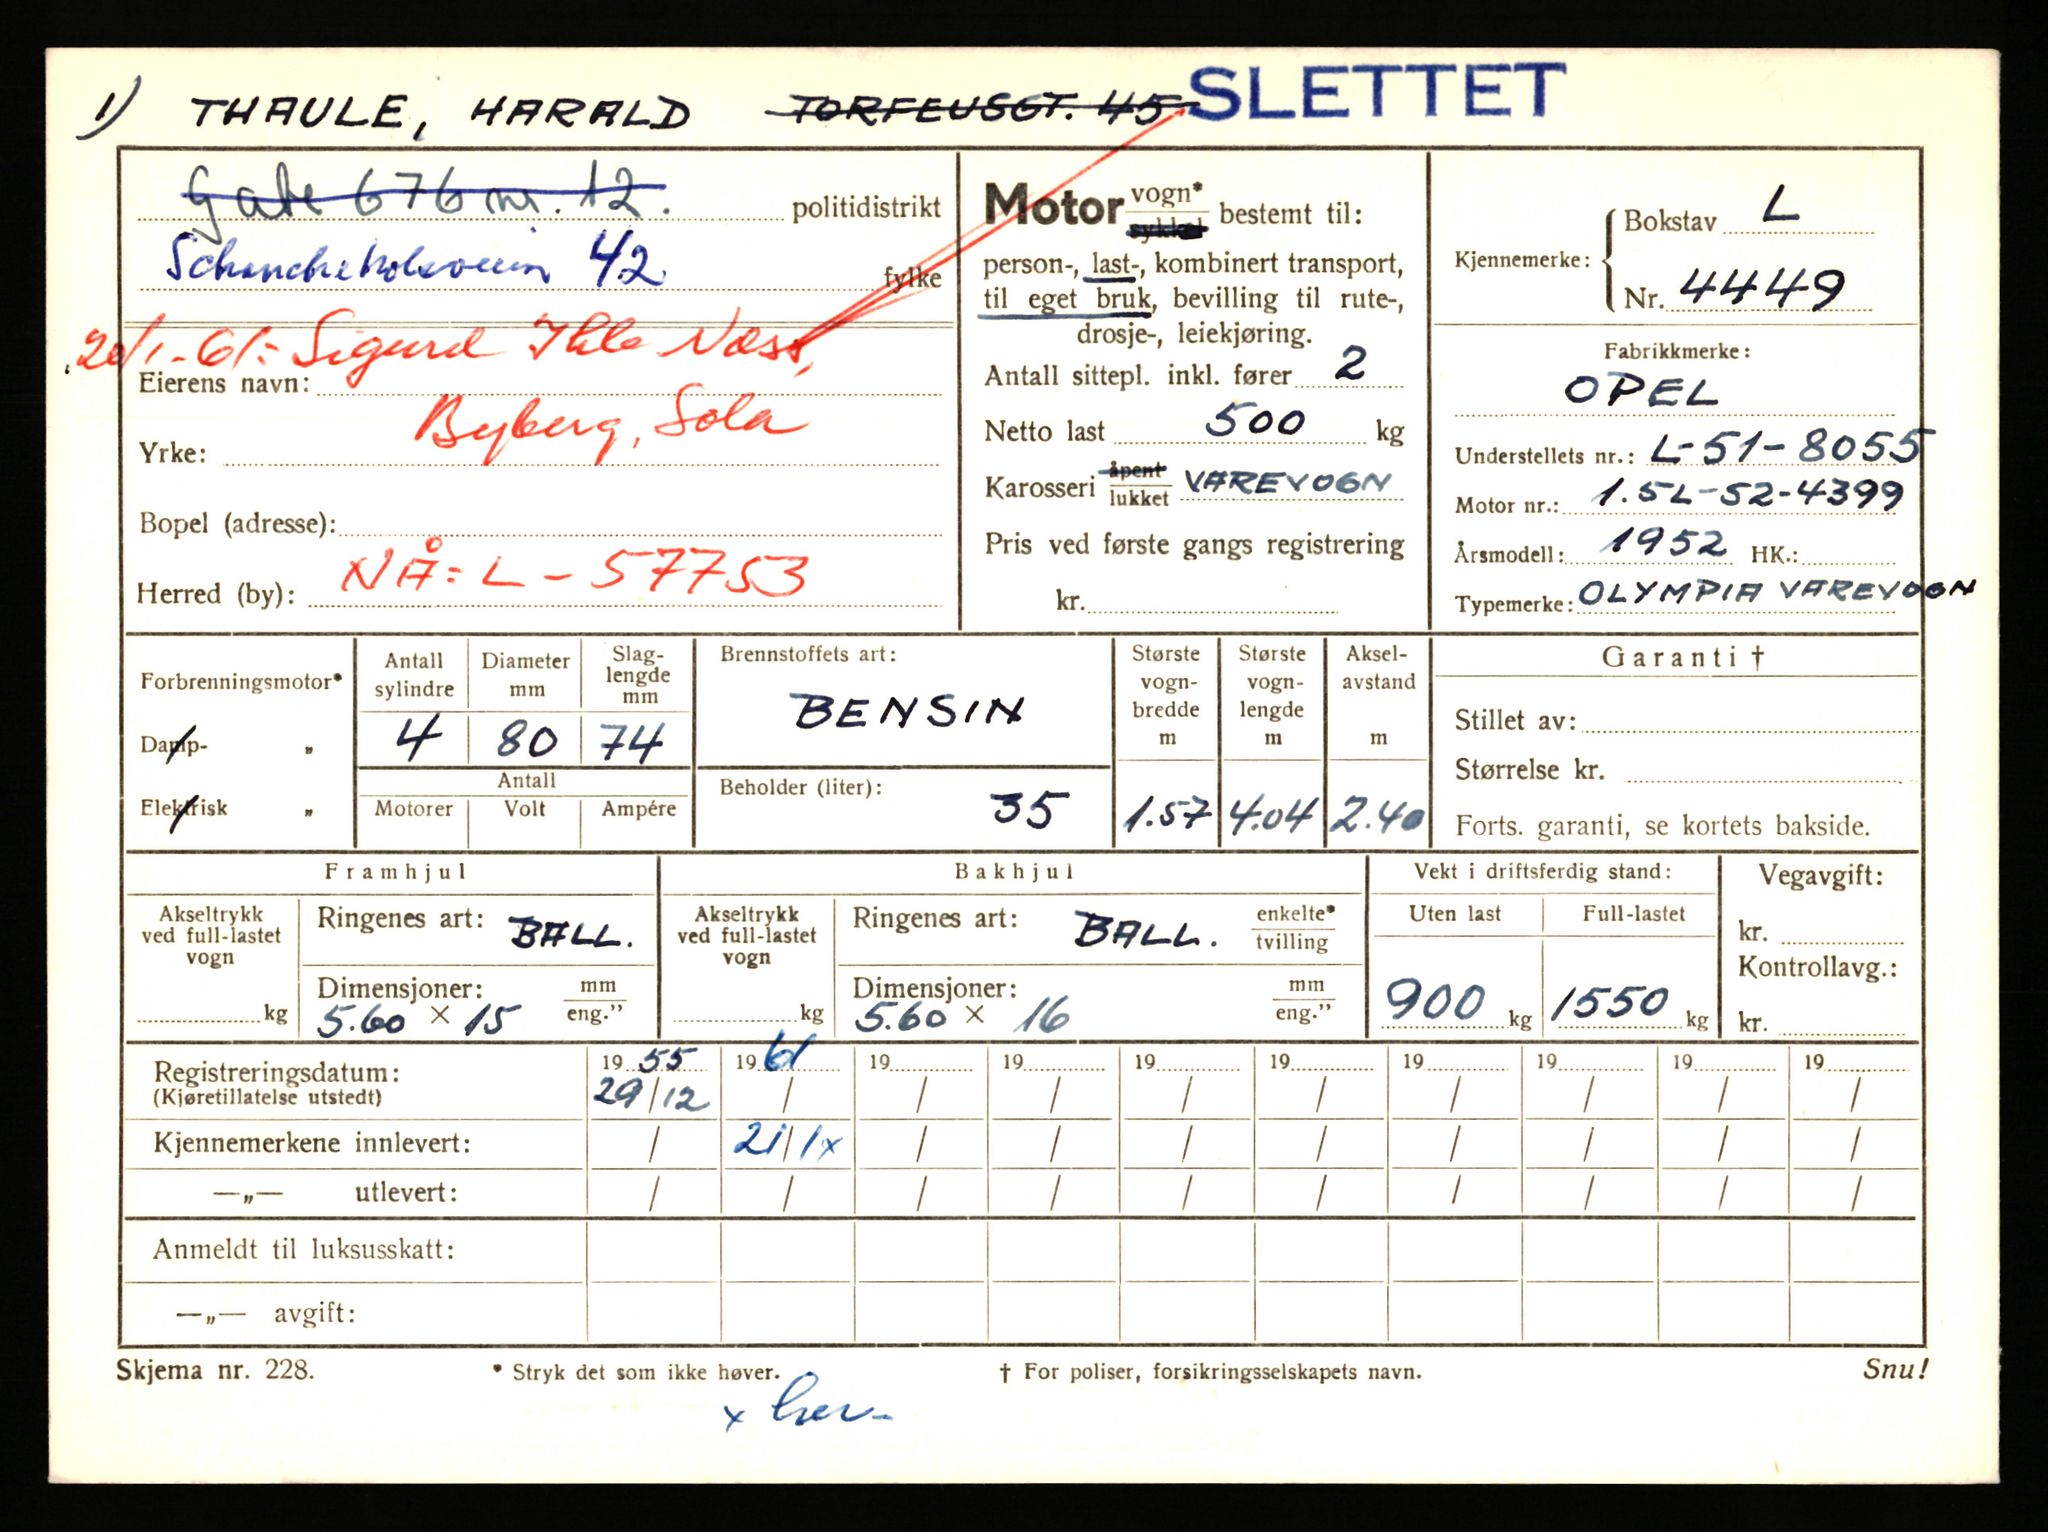 1) THAULE, HARALD TORFEUSGT. 45 SLETTET
Gate 676 nr. 12. politidistrikt
Schancheholsveien 42 fylke
20/1-61: Sigurd Ihle Næss,
Eierens navn:
Byberg, Sola
Yrke:
Bopel (adresse):
NÅ: L-57753
Herred (by):
Motor vogn* sykkel bestemt til:
person-, last-, kombinert transport,
til eget bruk, bevilling til rute-,
drosje-, leiekjøring.
Antall sittepl. inkl. fører 2
Netto last 500 kg
Karosseri åpent lukket VAREVOGN
Pris ved første gangs registrering
kr.
Kjennemerke: Bokstav L
Nr. 4449
Fabrikkmerke:
OPEL
Understellets nr.: L-51-8055
Motor nr.: 1.5L-52-4399
Årsmodell: 1952 HK.:
Typemerke: OLYMPIA VAREVOGN
Forbrenningsmotor*
Damp- „
Elektrisk „
Antall sylindre Diameter mm Slag-lengde mm
4 80 74
Antall
Motorer Volt Ampére
Brennstoffets art:
BENSIN
Beholder (liter):
35
Største vogn-bredde m Største vogn-lengde m Aksel-avstand m
1.57 4.04 2.40
Garanti †
Stillet av:
Størrelse kr.
Forts. garanti, se kortets bakside.
Framhjul
Akseltrykk ved full-lastet vogn
kg
Ringenes art: BALL.
Dimensjoner: mm eng.”
5.60 × 15
Bakhjul
Akseltrykk ved full-lastet vogn
kg
Ringenes art: BALL. enkelte* tvilling
Dimensjoner: mm eng.”
5.60 × 16
Vekt i driftsferdig stand:
Uten last Full-lastet
900 kg 1550 kg
Vegavgift:
kr.
Kontrollavg.:
kr.
Registreringsdatum: 19 55 19 61 19 19 19 19 19 19 19 19
(Kjøretillatelse utstedt) 29/12 / / / / / / / / /
Kjennemerkene innlevert: / 21/1x / / / / / / / /
—„— utlevert: / / / / / / / / / /
Anmeldt til luksusskatt:
—„— avgift:
Skjema nr. 228. * Stryk det som ikke høver. † For poliser, forsikringsselskapets navn. Snu!
x